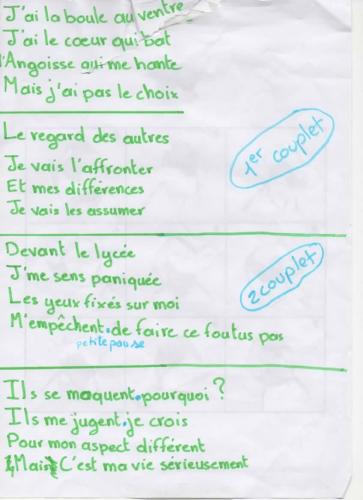 J'ai la boule au ventre
J'ai le cœur qui bat
l'Angoisse qui me hante
Mais j'ai pas le choix
Le regard des autres
Je vais l'affronter
Et mes différences
Je vais les assumer
1er couplet
Devant le lycée
J'me sens paniquée
Les yeux fixés sur moi
M'empêchent.de faire ce foutus pas
petite pause
2 couplet
Ils se moquent.pourquoi ?
Ils me jugent.je crois
Pour mon aspect différent
Mais C'est ma vie sérieusement